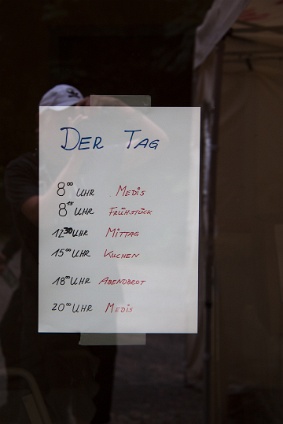 DER TAG
8⁰⁰ UHR MEDIS
8¹⁵ UHR FRÜHSTÜCK
12³⁰ UHR MITTAG
15⁰⁰ UHR KUCHEN
18⁰⁰ UHR ABENDBROT
20⁰⁰ UHR MEDIS